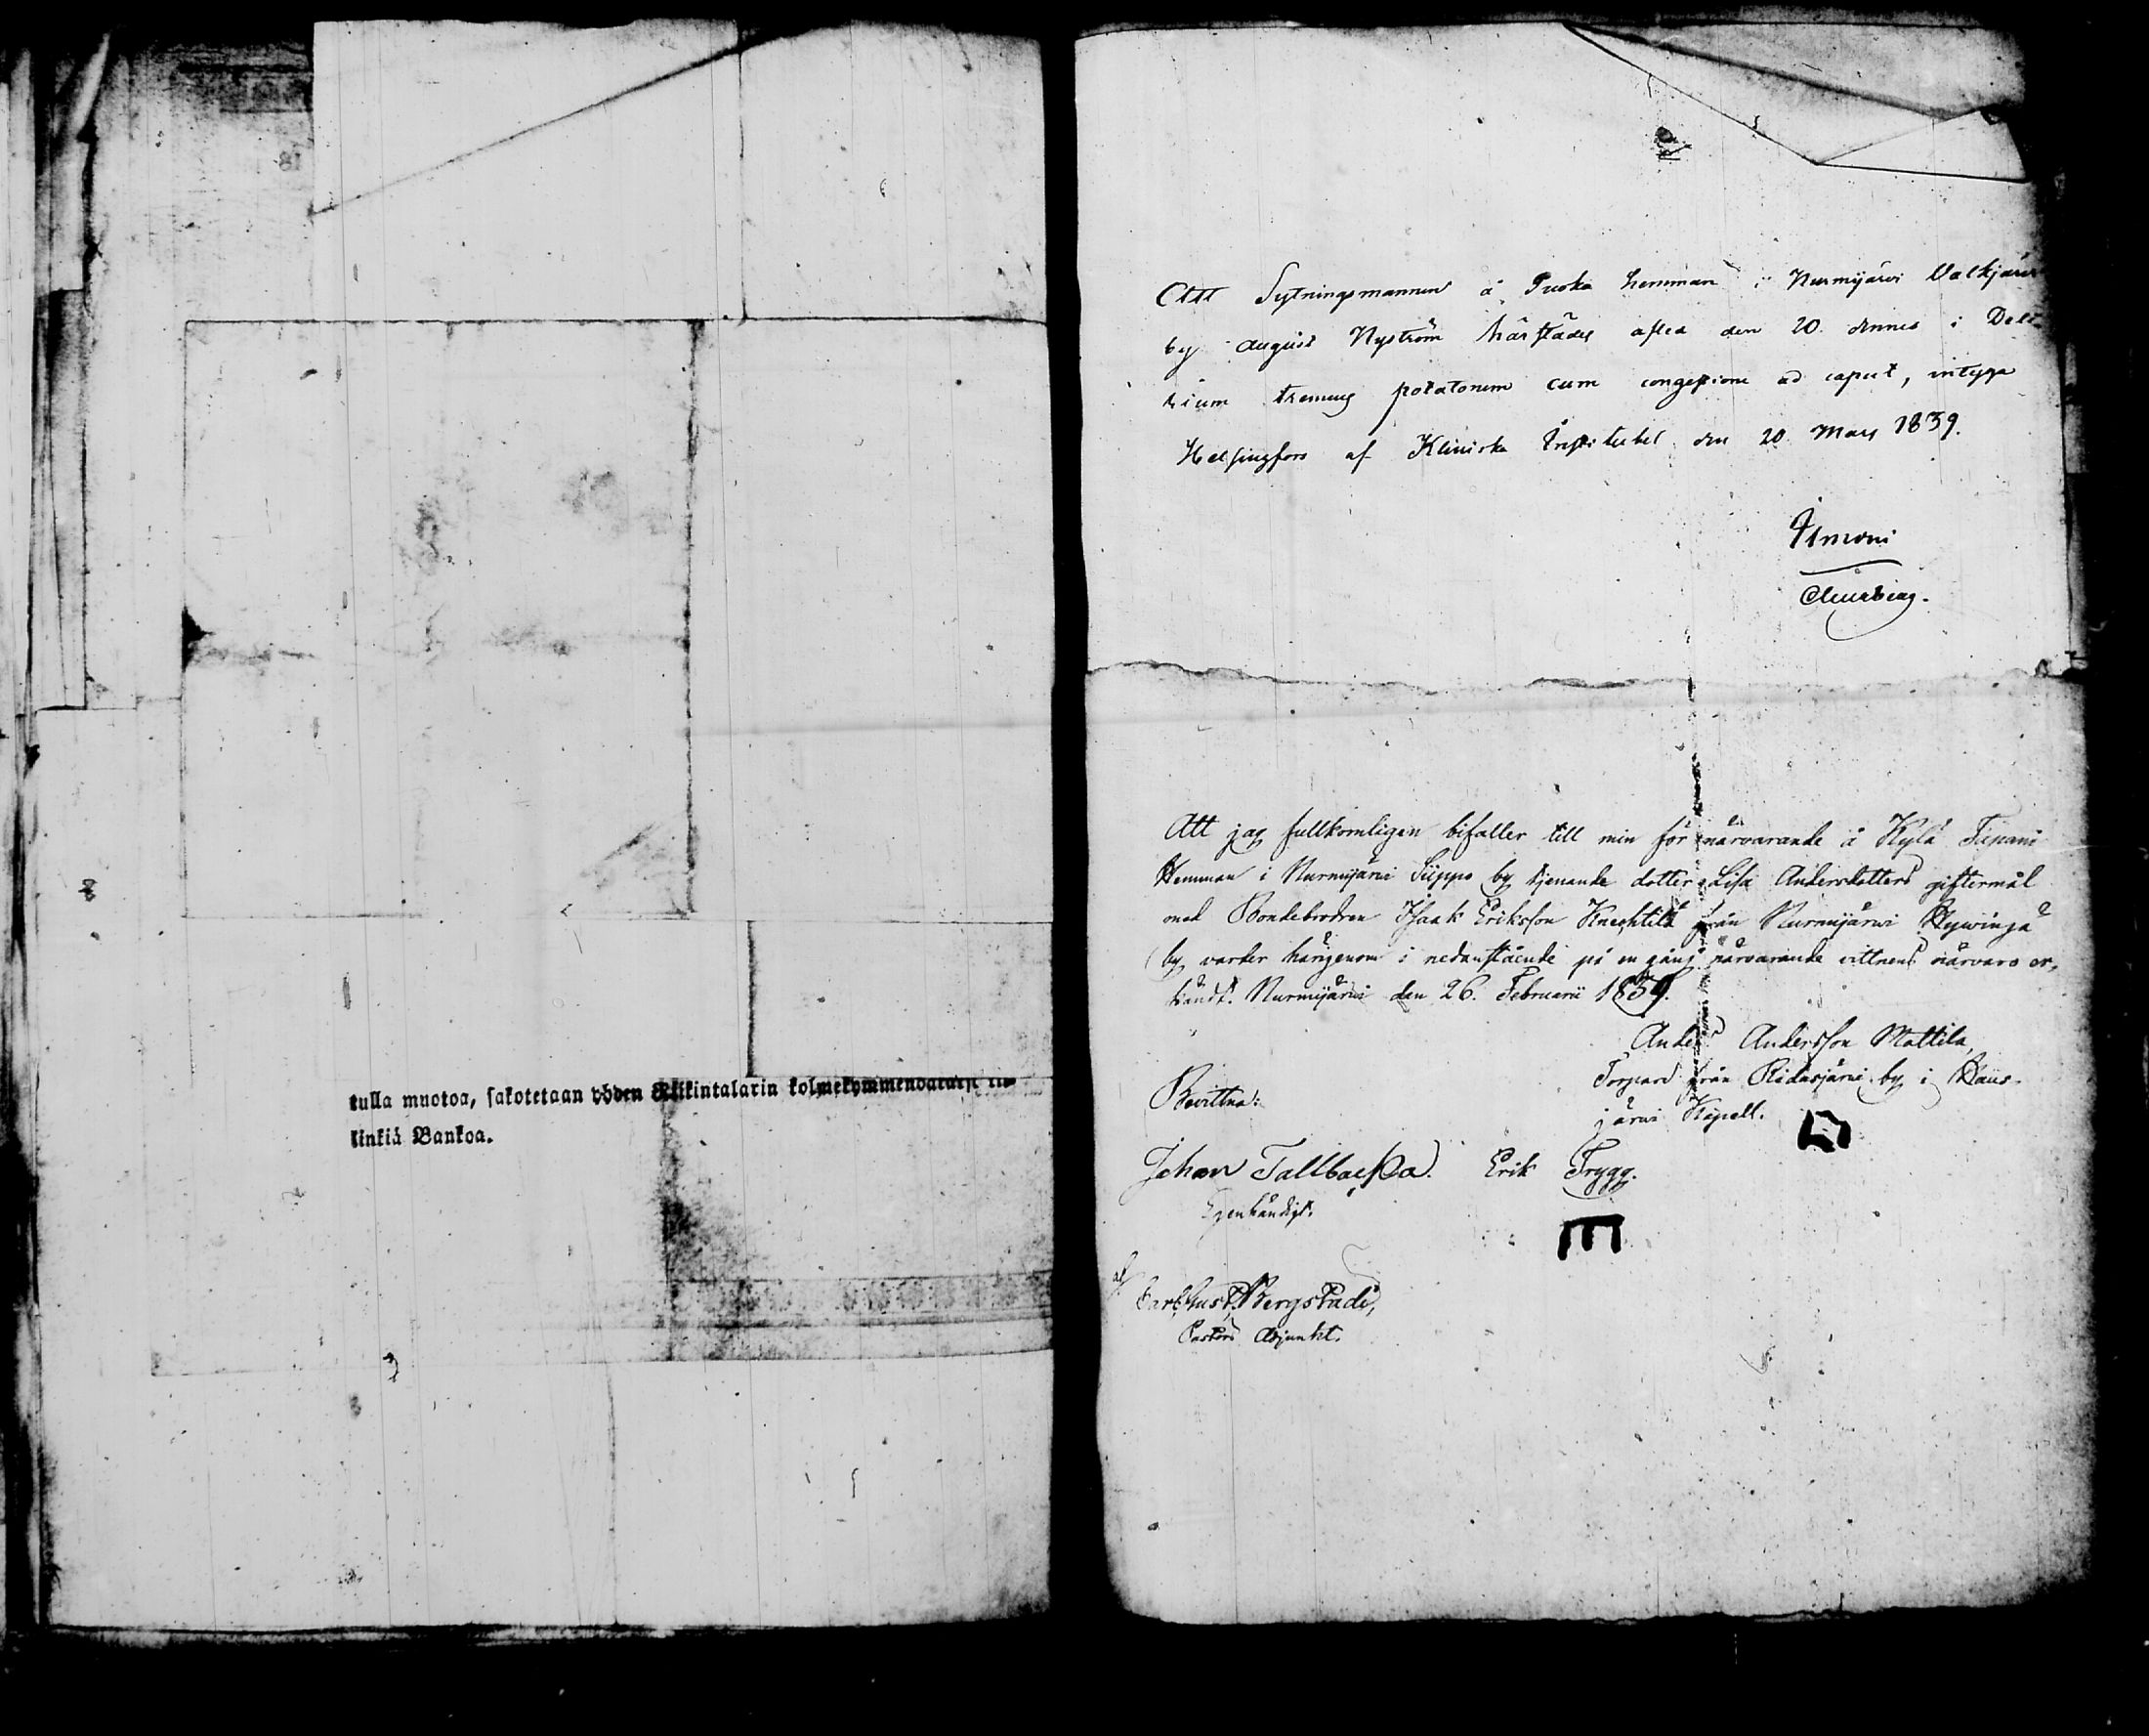 tulla muotoa, sakotetaan yhden Riikintalarin kolmekymmendäwiisi kil-
linkiä Bankoa.
Att Sytningsmannen å Puska hemman i Nurmijärvi Valkjärvi
by August Nyström härstädes afled den 20. dennes i Deli-
rium tremens potatorum cum congestione ad caput, intyga
Helsingfors af Kliniska Institutet den 20 Mars 1839.
Immoni
Att jag fullkomligen bifaller till min för närvarande å Kylä Tapani
Hemman i Nurmijärvi Siippo by tjenande dotter Lisa Andersdotters giftermål
med Bondebrodren Isaak Eriksson Knechtilä från Nurmijärvi Hyvingä
by varder härigenom i nedanstående på en gång närvarande vittnens närvaro er-
kändt. Nurmijärvi den 26. Februarii 1839.
Anders Andersson Mattila,
Torpare från Ridasjärvi by i Haus-
järvi Kapell.
Bevittna:
Johan Tallbacka. Erik Trygg.
Egenhändigt.
af Carl Gust. Bergstadi,
Pastors Adjunkt.